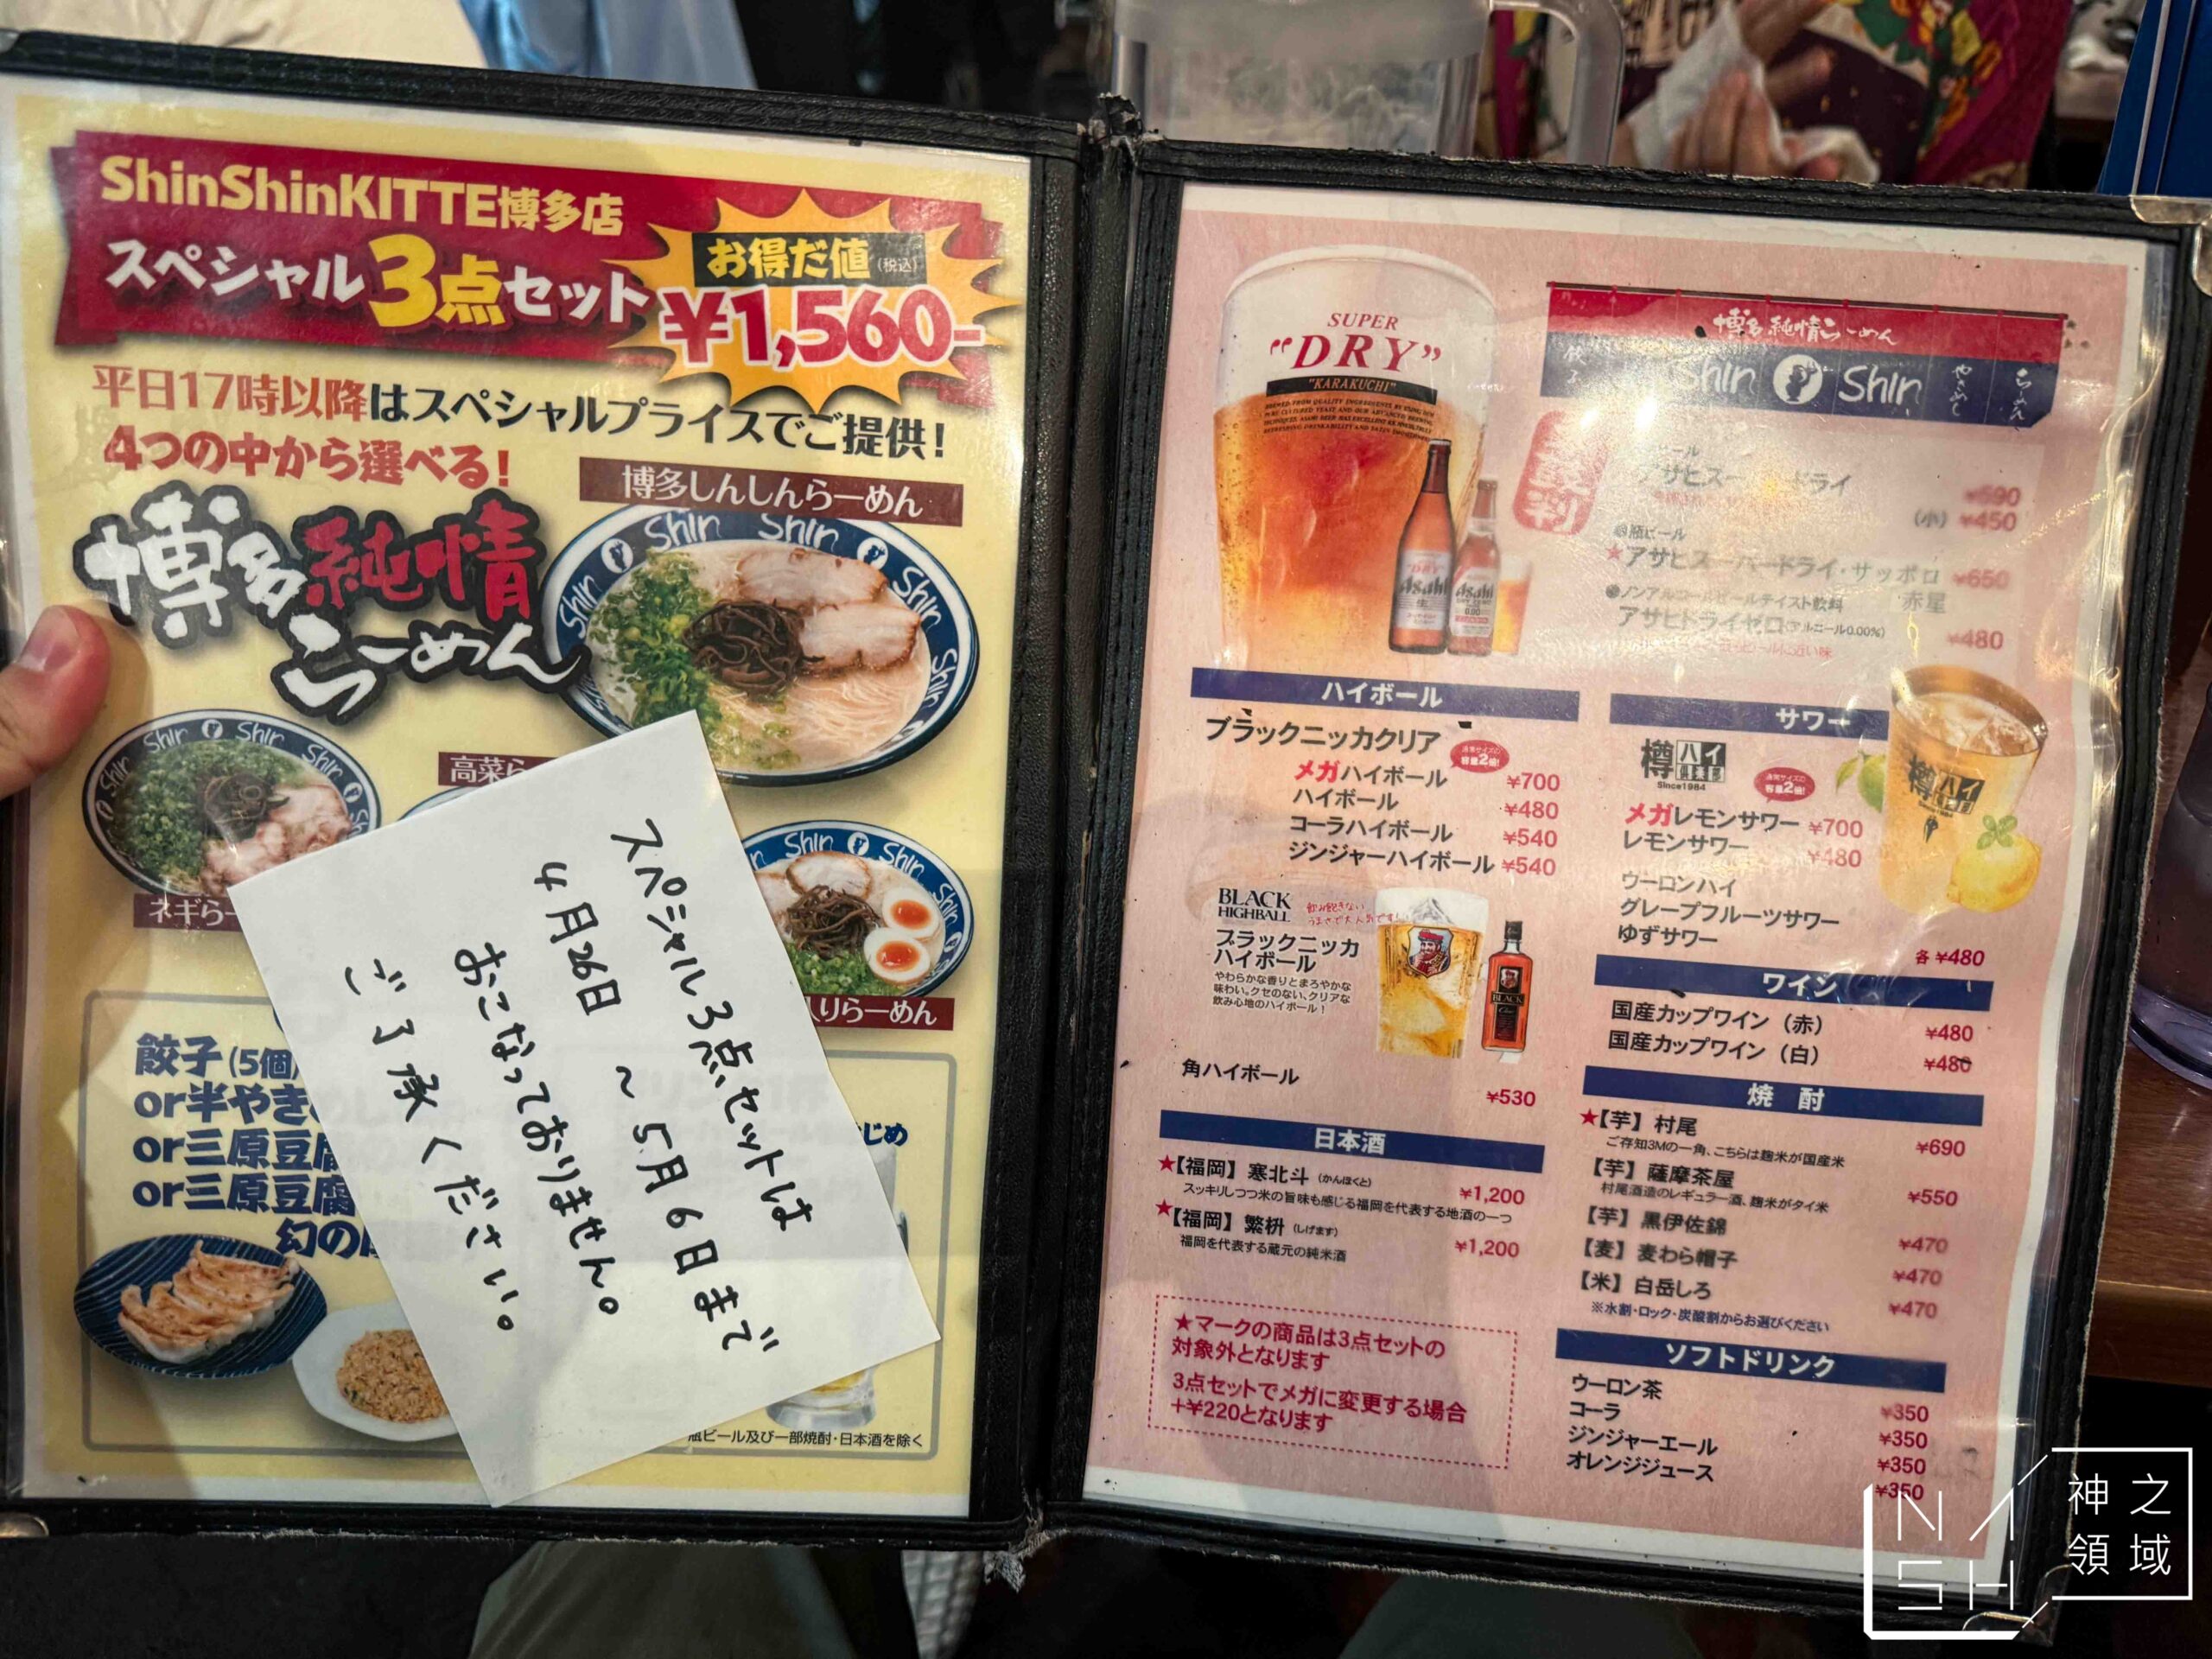 ShinShinKITTE博多店
スペシャル3点セット
お得だ値(税込)
¥1,560-
平日17時以降はスペシャルプライスでご提供!
4つの中から選べる!
博多純情らーめん
博多しんしんらーめん
Shin Shin
高菜ら
ネギらー
入りらーめん
餃子(5個)
or半やき
or三原豆腐
or三原豆腐
幻の
じめ
瓶ビール及び一部焼酎・日本酒を除く
スペシャル3点セットは
4月26日 ~ 5月6日まで
おこなっておりません。
ご了承ください。
SUPER
"DRY"
"KARAKUCHI"
博多純情らーめん
Shin Shin
やきめし
らーめん
アサヒスーパードライ
¥590
(小) ¥450
瓶ビール
★アサヒスーパードライ・サッポロ赤星 ¥650
●ノンアルコールビールテイスト飲料
アサヒドライゼロ(アルコール0.00%) ¥480
ハイボール
ブラックニッカクリア
通常サイズの容量2倍!
メガハイボール ¥700
ハイボール ¥480
コーラハイボール ¥540
ジンジャーハイボール ¥540
BLACK
HIGHBALL
飲み飽きない
うまさで大人気です!
ブラックニッカ
ハイボール
やわらかな香りとまろやかな
味わい。クセのない、クリアな
飲み心地のハイボール!
角ハイボール ¥530
日本酒
★【福岡】寒北斗(かんほくと) ¥1,200
スッキリしつつ米の旨味も感じる福岡を代表する地酒の一つ
★【福岡】繁枡(しげます) ¥1,200
福岡を代表する蔵元の純米酒
★マークの商品は3点セットの
対象外となります
3点セットでメガに変更する場合
+¥220となります
サワー
樽ハイ倶楽部
Since1984
通常サイズの容量2倍!
メガレモンサワー ¥700
レモンサワー ¥480
ウーロンハイ
グレープフルーツサワー
ゆずサワー
各 ¥480
ワイン
国産カップワイン(赤) ¥480
国産カップワイン(白) ¥480
焼酎
★【芋】村尾 ¥690
ご存知3Mの一角、こちらは麹米が国産米
【芋】薩摩茶屋 ¥550
村尾酒造のレギュラー酒、麹米がタイ米
【芋】黒伊佐錦 ¥470
【麦】麦わら帽子 ¥470
【米】白岳しろ ¥470
※水割・ロック・炭酸割からお選びください
ソフトドリンク
ウーロン茶 ¥350
コーラ ¥350
ジンジャーエール ¥350
オレンジジュース ¥350
NASH
神之領域